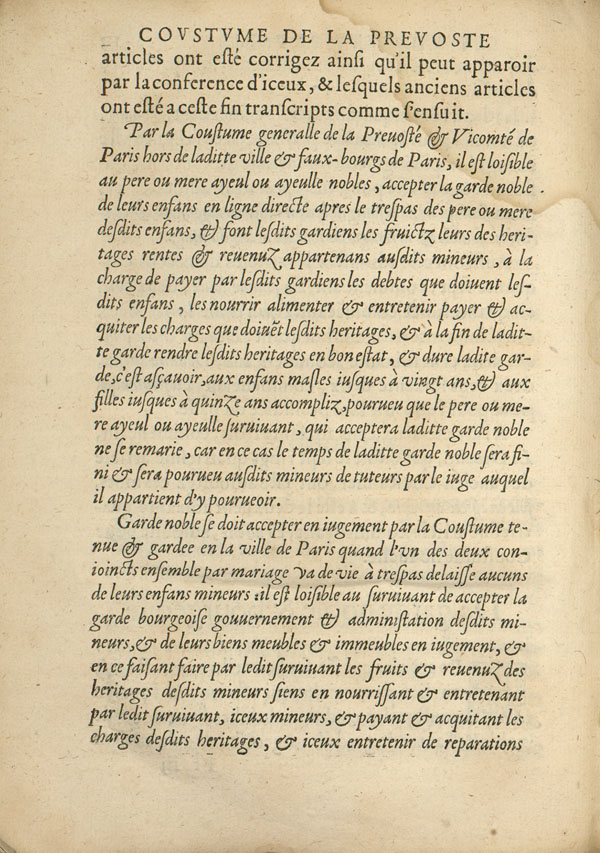 COVSTVME DE LA PREVOSTE
articles ont eſté corrigez ainſi qu'il peut apparoir
par la conference d'iceux, & leſquels anciens articles
ont eſté a ceſte fin tranſcripts comme ſ'enſuit.
Par la Couſtume generalle de la Preuoſté & Vicomté de
Paris hors de laditte ville & faux-bourgs de Paris, il eſt loiſible
au pere ou mere ayeul ou ayeulle nobles, accepter la garde noble
de leurs enfans en ligne directe apres le treſpas des pere ou mere
deſdits enfans, & font leſdits gardiens les fruictz leurs des heri-
tages rentes & reuenuz appartenans auſdits mineurs, à la
charge de payer par leſdits gardiens les debtes que doiuent leſ-
dits enfans, les nourrir alimenter & entretenir payer & ac-
quiter les charges que doiuẽt leſdits heritages, & à la fin de ladit-
te garde rendre leſdits heritages en bon eſtat, & dure ladite gar-
de, c'eſt aſçauoir, aux enfans maſles iuſques à vingt ans, & aux
filles iuſques à quinze ans accompliz, pourueu que le pere ou me-
re ayeul ou ayeulle ſuruiuant, qui acceptera laditte garde noble
ne ſe remarie, car en ce cas le temps de laditte garde noble ſera fi-
ni & ſera pourueu auſdits mineurs de tuteurs par le iuge auquel
il appartient d'y pourueoir.
Garde noble ſe doit accepter en iugement par la Couſtume te-
nue & gardee en la ville de Paris quand l'vn des deux con-
ioincts enſemble par mariage va de vie à treſpas delaiſſe aucuns
de leurs enfans mineurs : il eſt loiſible au ſuruiuant de accepter la
garde bourgeoiſe gouuernement & adminiſtation deſdits mi-
neurs, & de leurs biens meubles & immeubles en iugement, &
en ce faiſant faire par ledit ſuruiuant les fruits & reuenuz des
heritages deſdits mineurs ſiens en nourriſſant & entretenant
par ledit ſuruiuant, iceux mineurs, & payant & acquitant les
charges deſdits heritages, & iceux entretenir de reparations